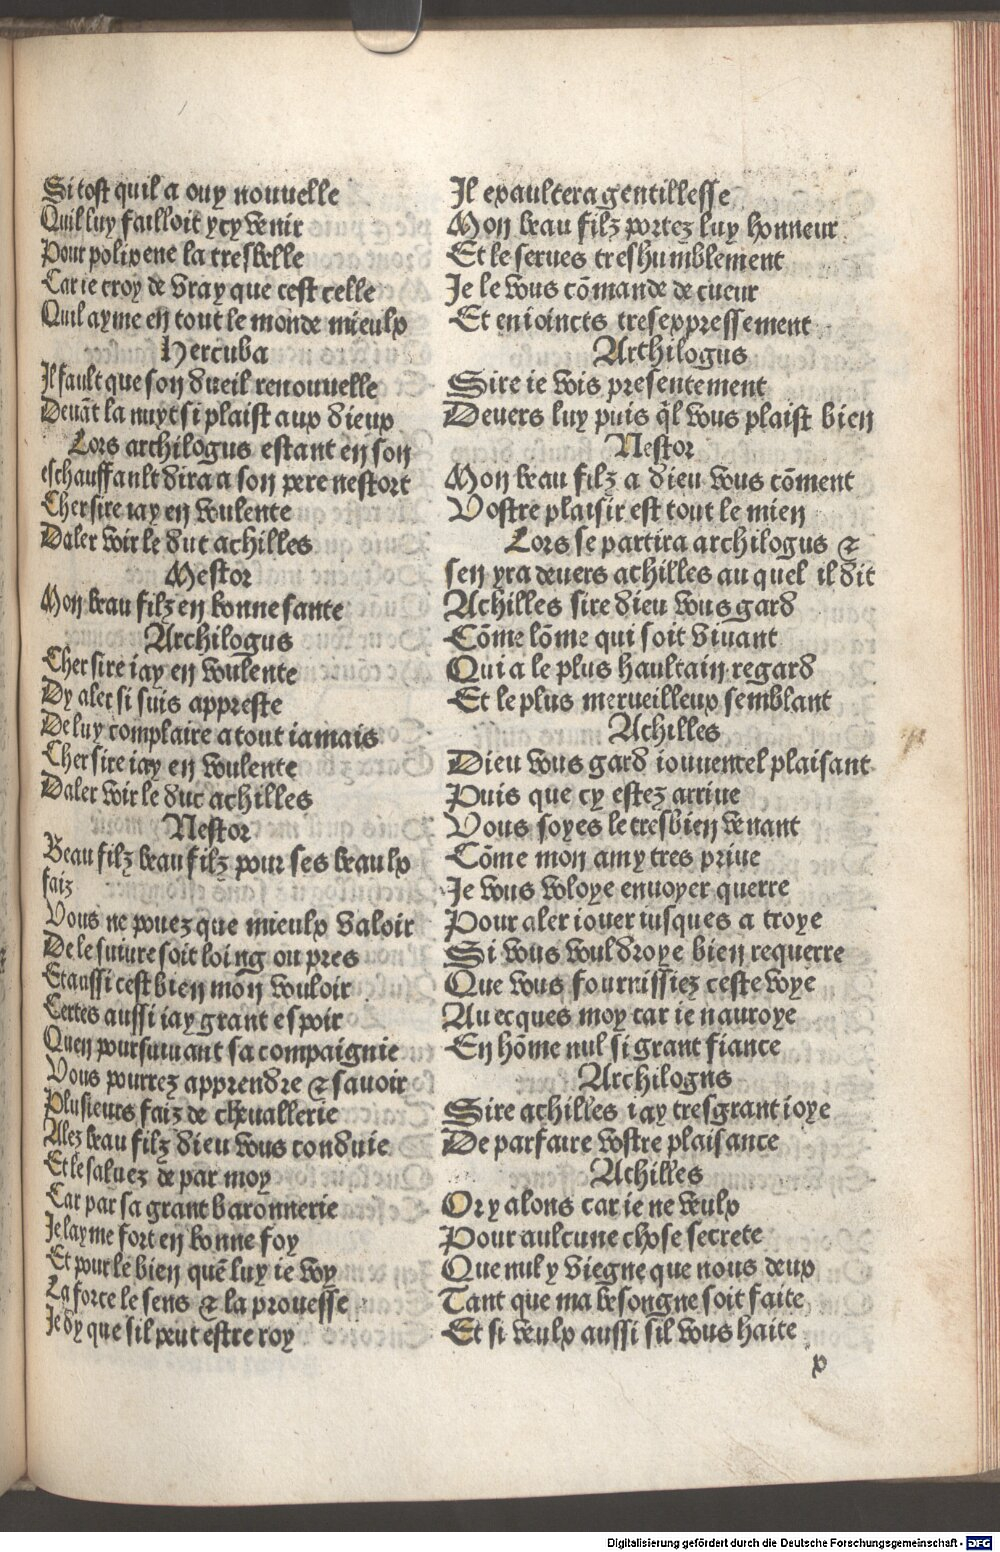 Si tost quil a ouy nouuelle
Quil luy failloit ycy venir
Pour polixene la tresbelle
Car ie croy de vray que cest celle
Quil ayme en tout le monde mieulx
Hercuba
Il fault que son dueil renouuelle
Deuāt la nuyt si plaist aux dieux
Lors archilogus estant en son
eschauffault dira a son pere nestort
Cher sire iay en voulente
Daler voir le duc achilles
Nestor
Mon beau filz en bonne sante
Archilogus
Cher sire iay en voulente
Dy aler si suis appreste
De luy complaire a tout iamais
Cher sire iay en voulente
Daler voir le duc achilles
Nestor
Beau filz beau filz pour ses beaulx
faiz
Vous ne pouez que mieulx valoir
De le suiure soit loing ou pres
Et aussi cest bien mon vouloir
Certes aussi iay grant espoir
Quen poursuiuant sa compaignie
Vous pourrez apprendre & sauoir
Plusieurs faiz de cheuallerie
Alez beau filz dieu vous conduie
Et le saluez de par moy
Car par sa grant baronnerie
Je layme fort en bonne foy
Et pour le bien quē luy ie voy
La force le sens & la prouesse
Je dy que sil peut estre roy
Il exaultera gentillesse
Mon beau filz portez luy honneur
Et le serues treshumblement
Je le vous cōmande de cueur
Et enioincts tresexpressement
Archilogus
Sire ie vois presentement
Deuers luy puis q̄l vous plaist bien
Nestor
Mon beau filz a dieu vous cōment
Vostre plaisir est tout le mien
Lors se partira archilogus &
sen yra deuers achilles au quel il dit
Achilles sire dieu vous gard
Cōme lōme qui soit viuant
Qui a le plus haultain regard
Et le plus merueilleux semblant
Achilles
Dieu vous gard iouuencel plaisant
Puis que cy estez arriue
Vous soyes le tresbien venant
Cōme mon amy tres priue
Je vous vloye enuoyer querre
Pour aler iouer iusques a troye
Si vous vouldroye bien requerre
Que vous fournissiez ceste voye
Auecques moy car ie nauroye
En hōme nul si grant fiance
Archilogus
Sire achilles iay tresgrant ioye
De parfaire vostre plaisance
Achilles
Or y alons car ie ne veulx
Pour aulcune chose secrete
Que nul y viegne que nous deux
Tant que ma besongne soit faite
Et si veulx aussi sil vous haite
x
Digitalisierung gefördert durch die Deutsche Forschungsgemeinschaft - DFG